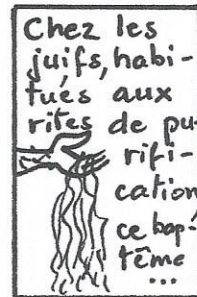 Chez les
juifs, habi-
tués aux
rites de pu-
rifi-
cation,
ce bap-
tême
...